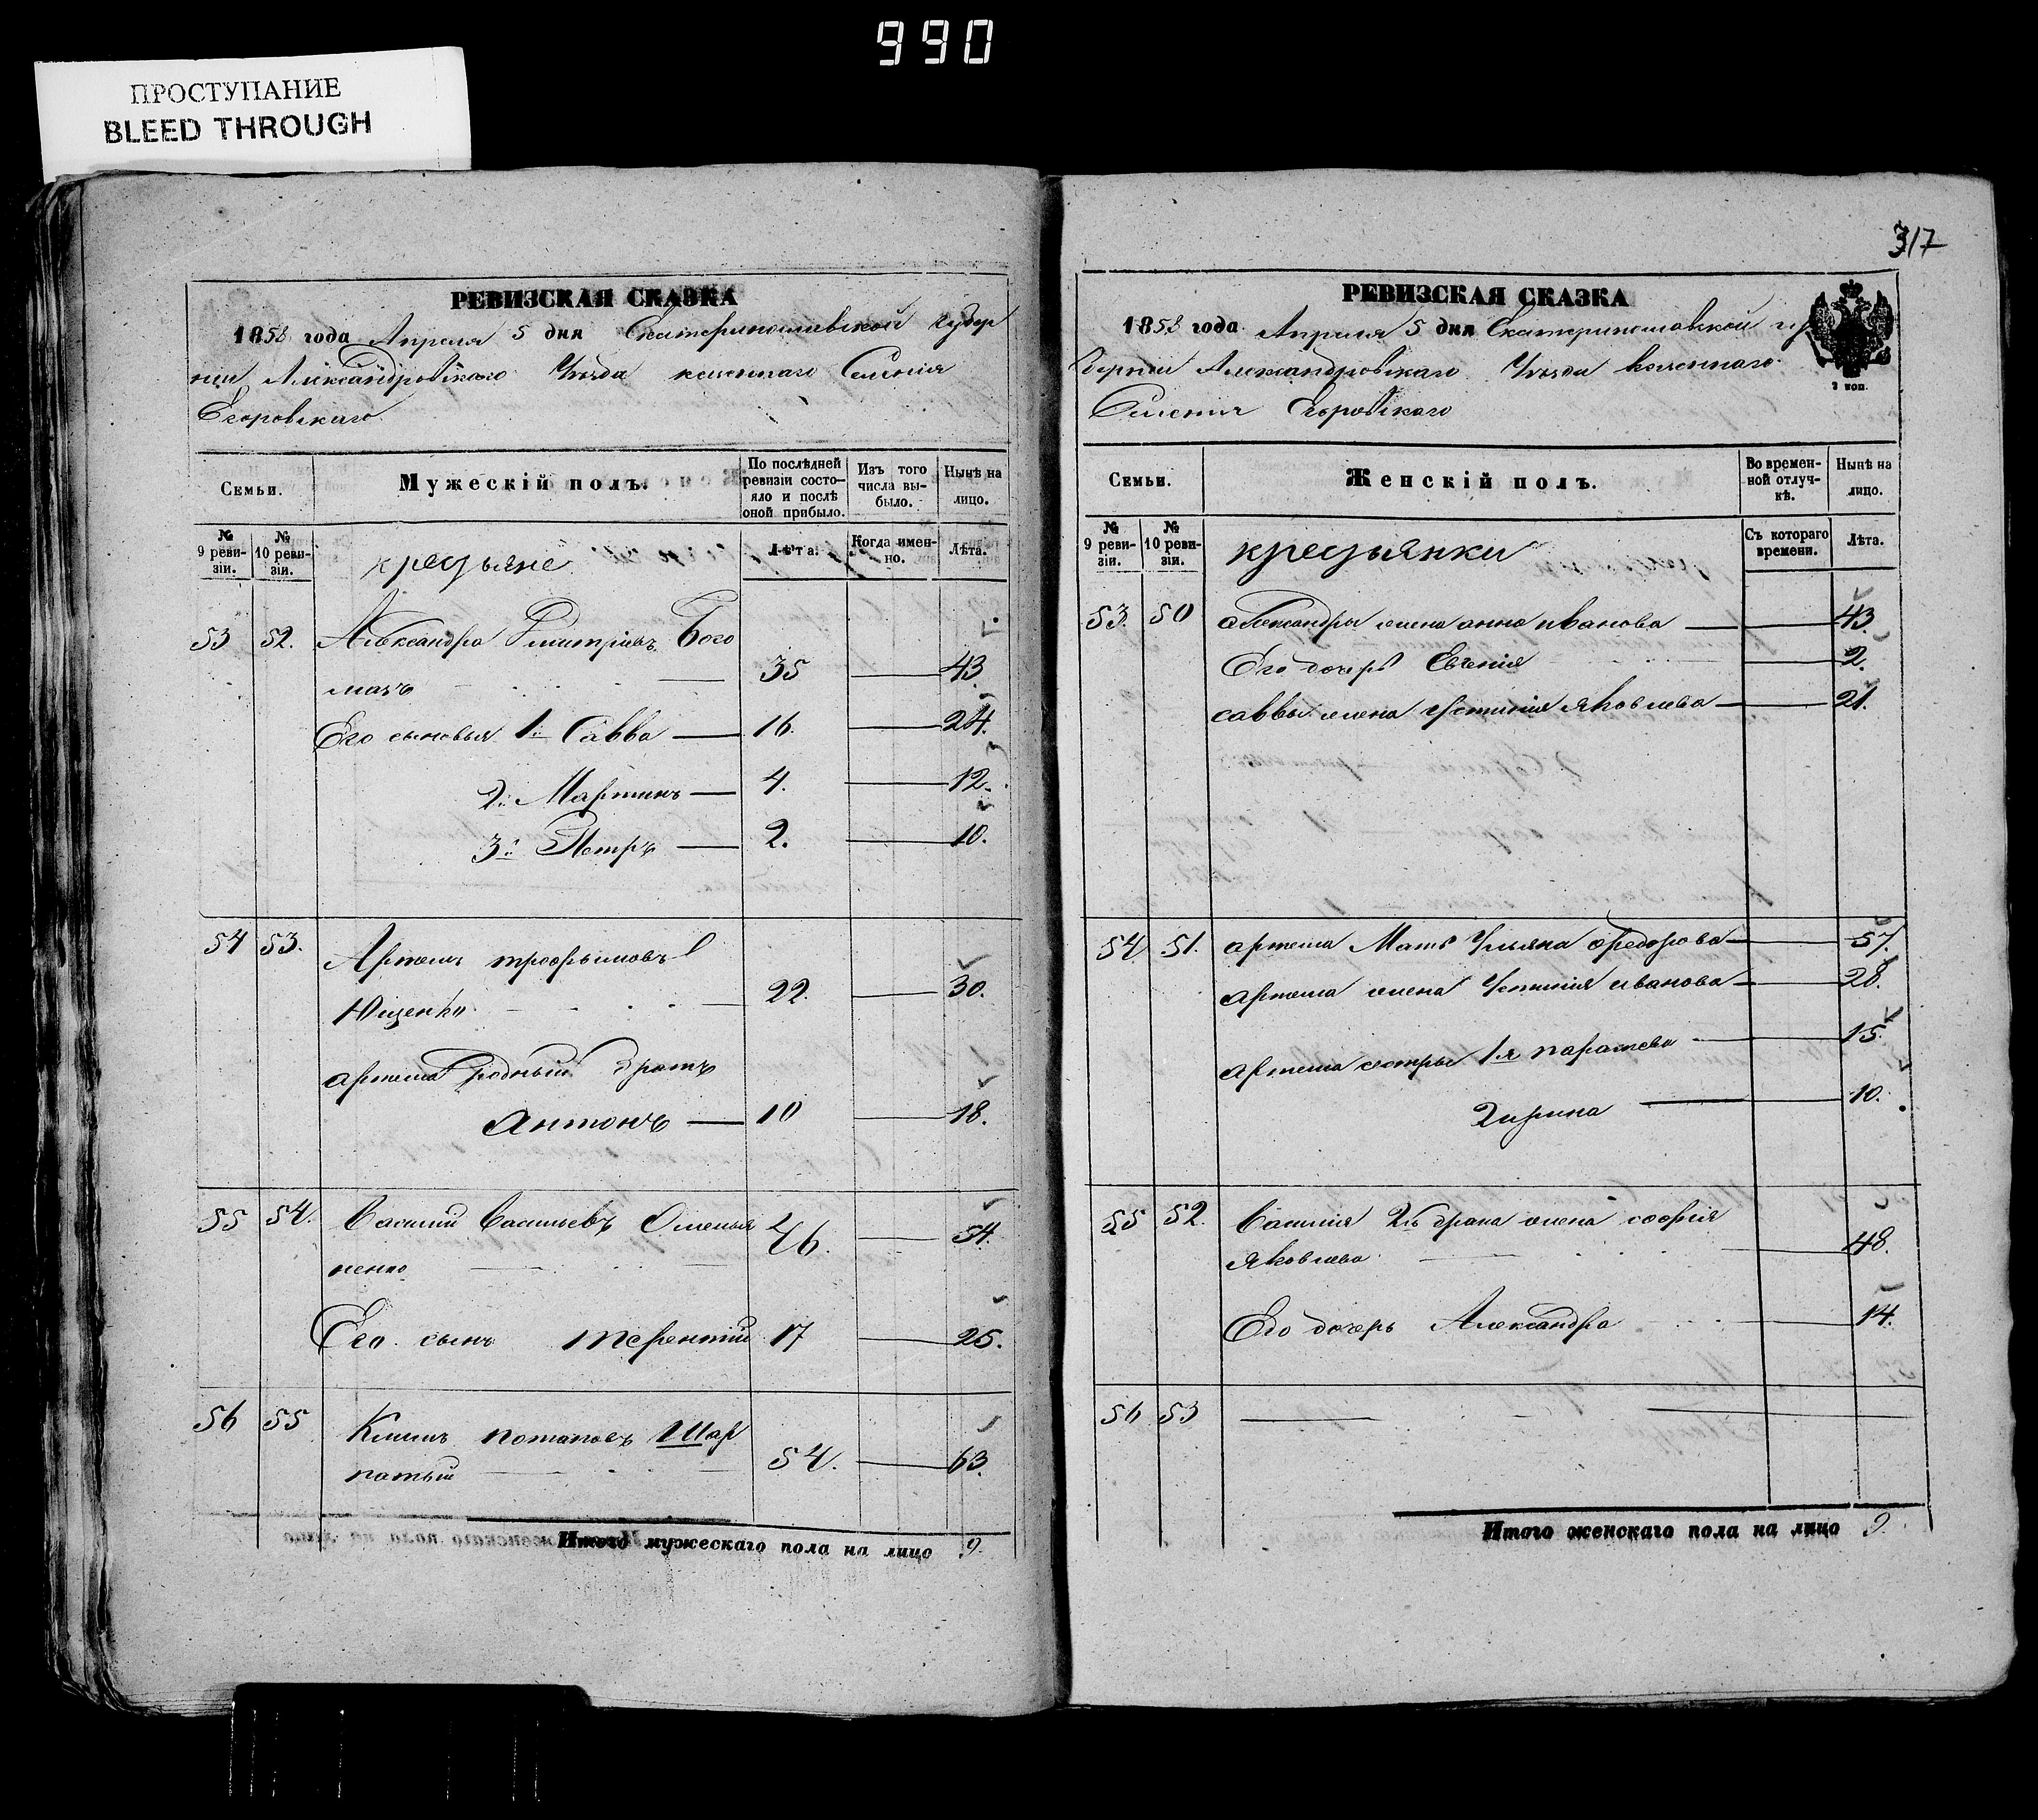 990
ПРОСТУПАНИЕ
BLEED THROUGH
РЕВИЗСКАЯ СКАЗКА
1858 года Апреля 5 дня Екатеринославской губер
ніи Александровскаго Уѣзда казеннаго Селенія
Егоровскаго
Семьи.
Мужескій полъ.
По послѣдней
ревизіи состо-
яло и послѣ
оной прибыло.
Изъ того
числа вы-
было.
Нынѣ на
лицо.
№
9 реви-
зіи.
№
10 реви-
зіи.
крестьяне
Лѣта.
Когда имен-
но.
Лѣта.
53 52. Александръ Дмитріевъ Бого
мазъ 35 43
Его сыновья 1й Савва 16. 24.
2й Мартинъ 4. 12.
3й Петръ 2. 10.
54 53. Артемъ трофимовъ
Юценко 22. 30.
артема родный братъ
антонъ 10 18.
55 54. Василий Васильевъ Омелья
ненко 46. 54.
Его сынъ терентій 17 25.
56 55 Климъ потаповъ Шар
патый 54. 63.
Итого мужескаго пола на лицо 9.
317
РЕВИЗСКАЯ СКАЗКА
1858 года Апреля 5 дня Екатеринославской гу
берніи Александровскаго Уѣзда казеннаго
Селенія Егоровскаго
Семьи.
Женскій полъ.
Во времен-
ной отлуч-
кѣ.
Нынѣ на
лицо.
№
9 реви-
зіи.
№
10 реви-
зіи.
крестьянки
Съ котораго
времени.
Лѣта.
53. 50 александра жена анна иванова 43.
Его дочерь Евгенія 2.
саввы жена Устинія яковлева 21.
54 51. артема Мать Ульяна федорова 57.
артема жена Устинія иванова 28.
артема сестры 1я парасковья 15.
2 ирина 10.
55 52. Василія 2го брака жена софія
яковлева 48.
Его дочерь Александра 14.
56 53
Итого женскаго пола на лицо 9.